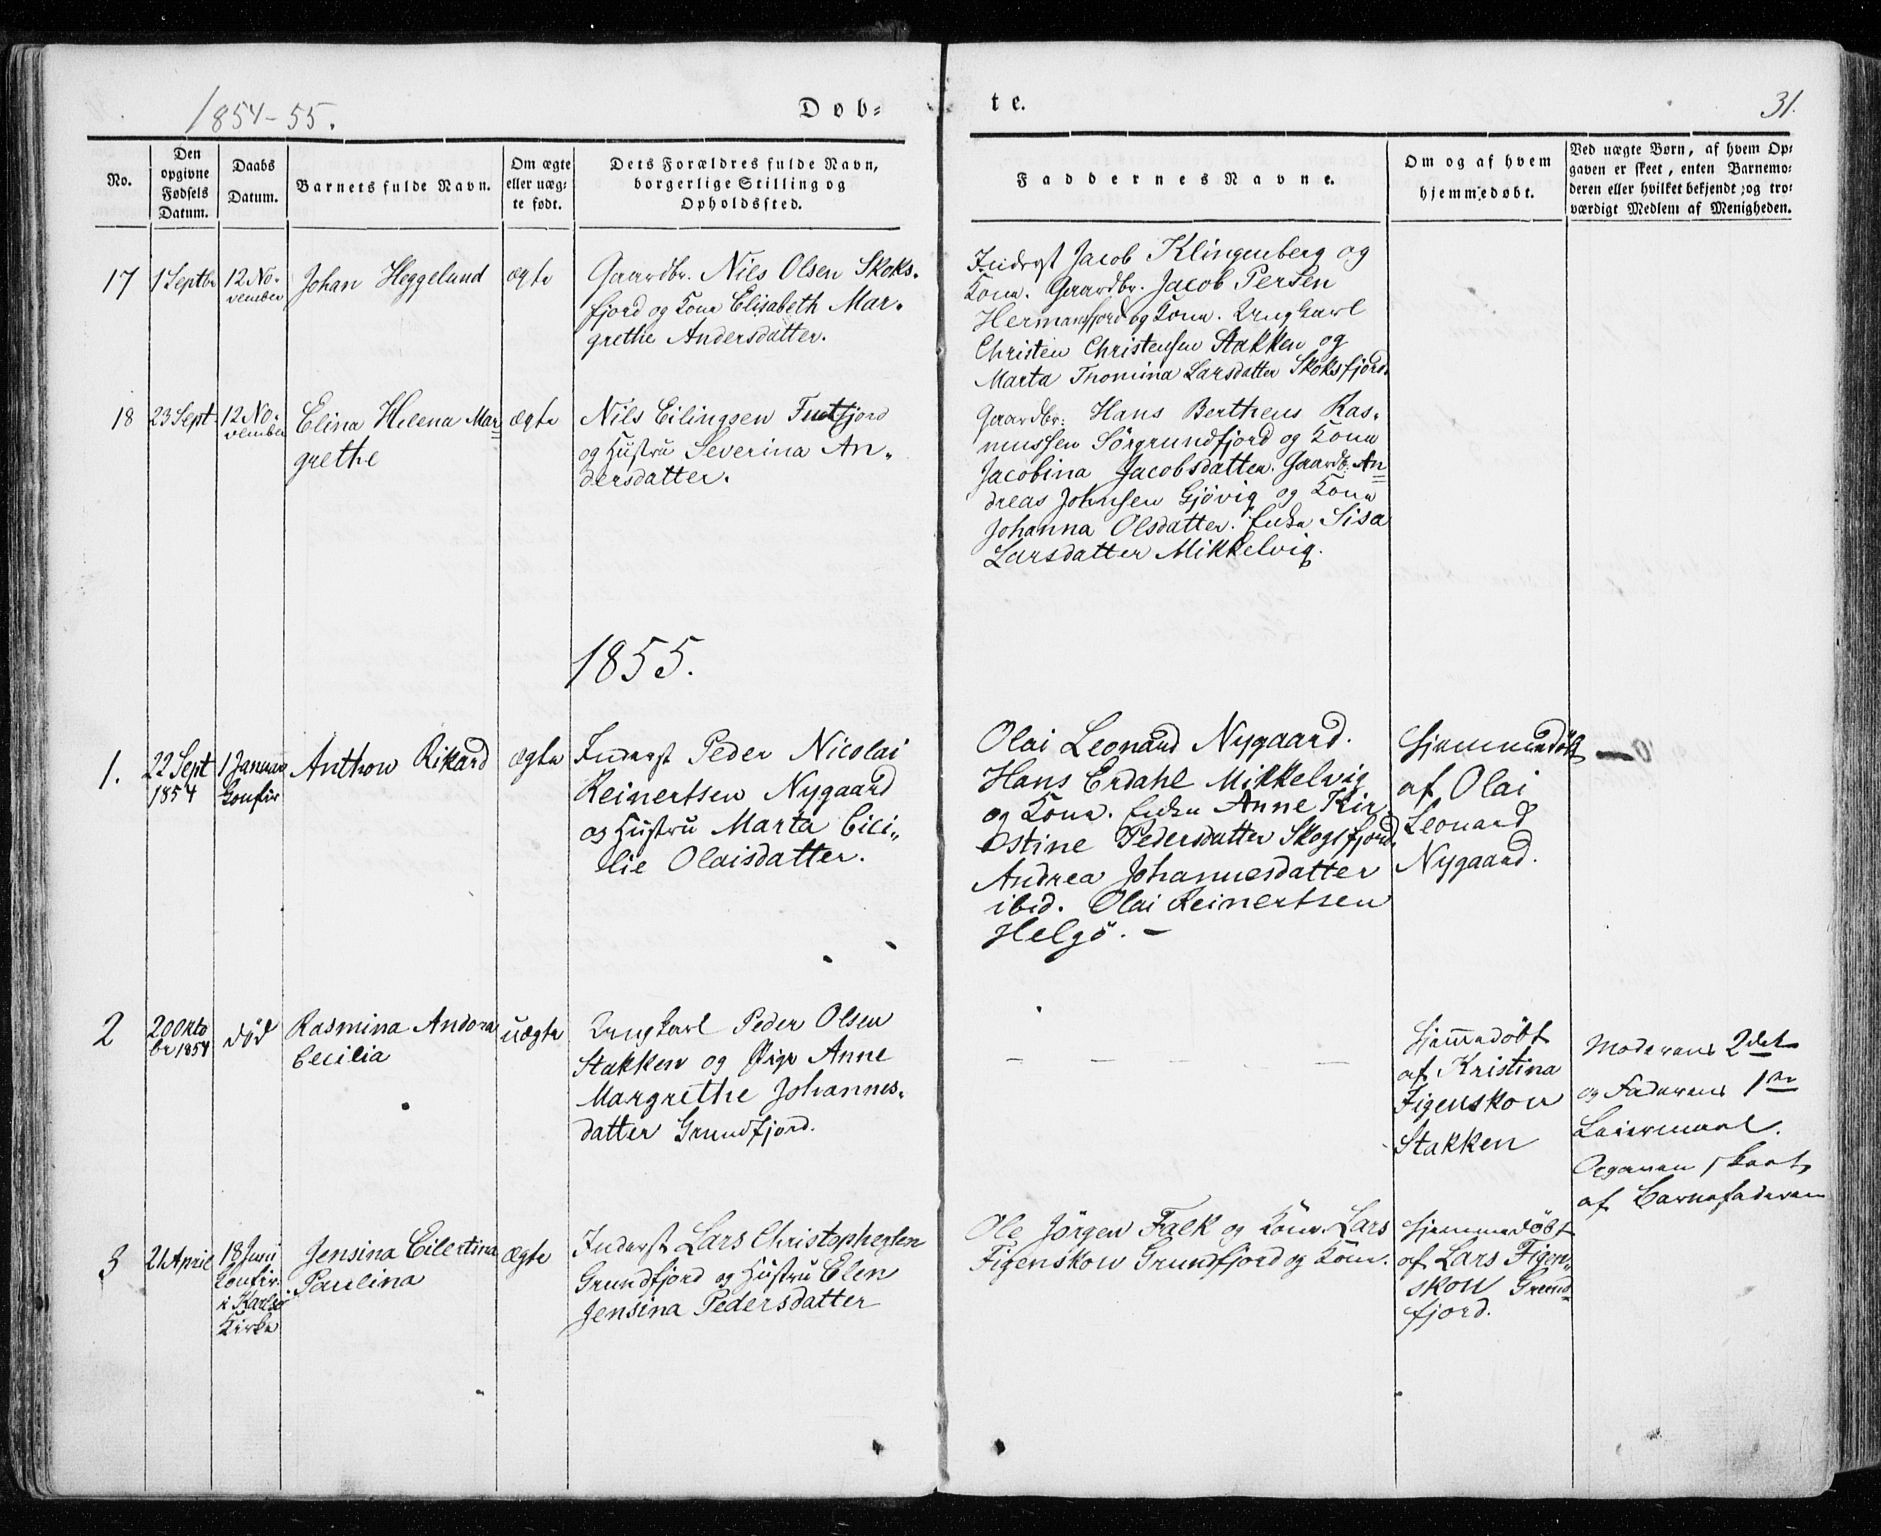 1854-55.
Døb-
te.
31.
No.
Den opgivne Fødsels Datum.
Daabs Datum.
Barnets fulde Navn.
Om ægte eller uæg-te født.
Dets Forældres fulde Navn, borgerlige Stilling og Opholdssted.
Faddernes Navne.
Om og af hvem hjemmedøbt.
Ved uægte Børn, af hvem Op-
gaven er skeet, enten Barnemo-
deren eller hvilket bekjendt og tro-
værdigt Medlem af Menigheden.
17
1 Septbr
12 No-
vember
Johan Heggelund
ægte
Gaardbr. Nils Olsen Skoks-
fjord og Kone Elisabeth Mar-
grethe Andersdatter.
Inderst Jacob Klingenberg og
Kone. Gaardbr. Jacob Persen
Hermansfjord og Kone. Ungkarl
Christen Christensen Stakken og
Marta Thomina Larsdatter Skoksfjord.
18
23 Sept.
12 No-
vember
Elina Helena Mar-
grethe
ægte
Nils Eilingsen
og Hustru Severina An-
dersdatter.
Gaardbr. Hans Bertheus Ras-
mussen Sörgrundfjord og Kone
Jacobina Jacobsdatter. Gaardb. An-
dreas Johnsen Gjövig og Kone
Johanna Olsdatter. Enke Sisa
Larsdatter Mikkelvig.
1855.
1.
22 Sept
1854
1 Januar
Confir
Anthon Rikard
ægte
Inderst Peder Nicolai
Reinertsen Nygaard
og Hustru Marta Cici-
lie Olaisdatter.
Olai Leonard Nygaard.
Hans Erdahl Mikkelvig
og Kone. Enke Anne Kir
stine Pedersdatter Skogsfjord,
Andrea Johannesdatter
ibid. Olai Reinertsen
Helgö. -
Hjemmedöbt
af Olai
Leonard
Nygaard.
2
20 Okto
br 1854
död
Rasmina Andora
Cecilia
uægte
Ungkarl Peder Olsen
Stakken og Pige Anne
Margrethe Johannes-
datter Grundfjord.
Hjemmedöbt
af Kristina
Figenskou
Stakken
Moderens 2det
og Faderens 1ste
Leiermaal.
Opgaven skeet
af Barnefaderen
3
21 April
18 Juni
Confir.
i Karlsö
Kirke
Jensina Eilertina
Paulina
Ægte
Inderst Lars Christophersen
Grundfjord og Hustru Elen
Jensina Pedersdatter
Ole Jörgen Falk og Kone. Lars
Figenskou Grundfjord og Kone.
Hjemmedöbt
af Lars Figen-
skou Grund-
fjord.